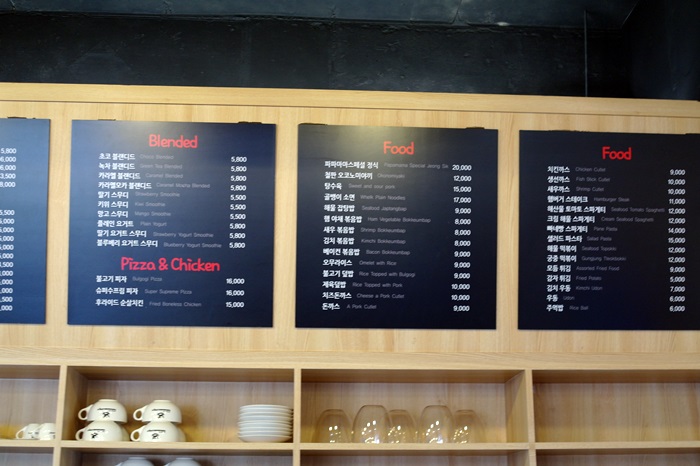 5,800
6,000
6,000
5,500
8,000
Blended
초코 블랜디드 Choco Blended 5,800
녹차 블랜디드 Green Tea Blended 5,800
카라멜 블랜디드 Caramel Blended 5,800
카라멜모카 블랜디드 Caramel Mocha Blended 5,800
딸기 스무디 Strawberry Smoothie 5,500
키위 스무디 Kiwi Smoothie 5,500
망고 스무디 Mango Smoothie 5,500
플레인 요거트 Plain Yogurt 5,800
딸기 요거트 스무디 Strawberry Yogurt Smoothie 5,800
블루베리 요거트 스무디 Blueberry Yogurt Smoothie 5,800
Pizza & Chicken
불고기 피자 Bulgogi Pizza 16,000
슈퍼수프림 피자 Super Supreme Pizza 16,000
후라이드 순살치킨 Fried Boneless Chicken 15,000
Food
스페셜 정식 Special Jeong 20,000
철판 오코노미야끼 Okonomiyaki 12,000
탕수육 Sweet and sour pork 15,000
골뱅이 소면 Whelk Plain Noodles 17,000
해물 잡탕밥 Seafood Japtangbap 9,000
햄 야채 볶음밥 Ham Vegetable Bokkeumbap 9,000
새우 볶음밥 Shrimp Bokkeumbap 8,000
김치 볶음밥 Kimchi Bokkeumbap 8,000
베이컨 볶음밥 Bacon Bokkeumbap 9,000
오무라이스 Omelet with Rice 9,000
불고기 덮밥 Rice Topped with Bulgogi 9,000
제육덮밥 Rice Topped with Pork 10,000
치즈돈까스 Cheese a Pork Cutlet 10,000
돈까스 A Pork Cutlet 9,000
Food
치킨까스 Chicken Cutlet 9,000
생선까스 Fish Stick Cutlet 9,000
새우까스 Shrimp Cutlet 10,000
햄버거 스테이크 Hamburger Steak 11,000
해산물 토마토 스파게티 Seafood Tomato Spaghetti 12,000
크림 해물 스파게티 Cream Seafood Spaghetti 12,000
뻬네펜 파스타 Pene Pasta 14,000
샐러드 파스타 Salad Pasta 15,000
해물 떡볶이 Seafood Topokki 12,000
궁중 떡볶이 Gungjung Tteokbokki 12,000
모듬 튀김 Assorted Fried Food 9,000
감자 튀김 Fried Potato 5,000
김치 우동 Kimchi Udon 7,000
우동 Udon 6,000
주먹밥 Rice Ball 6,000